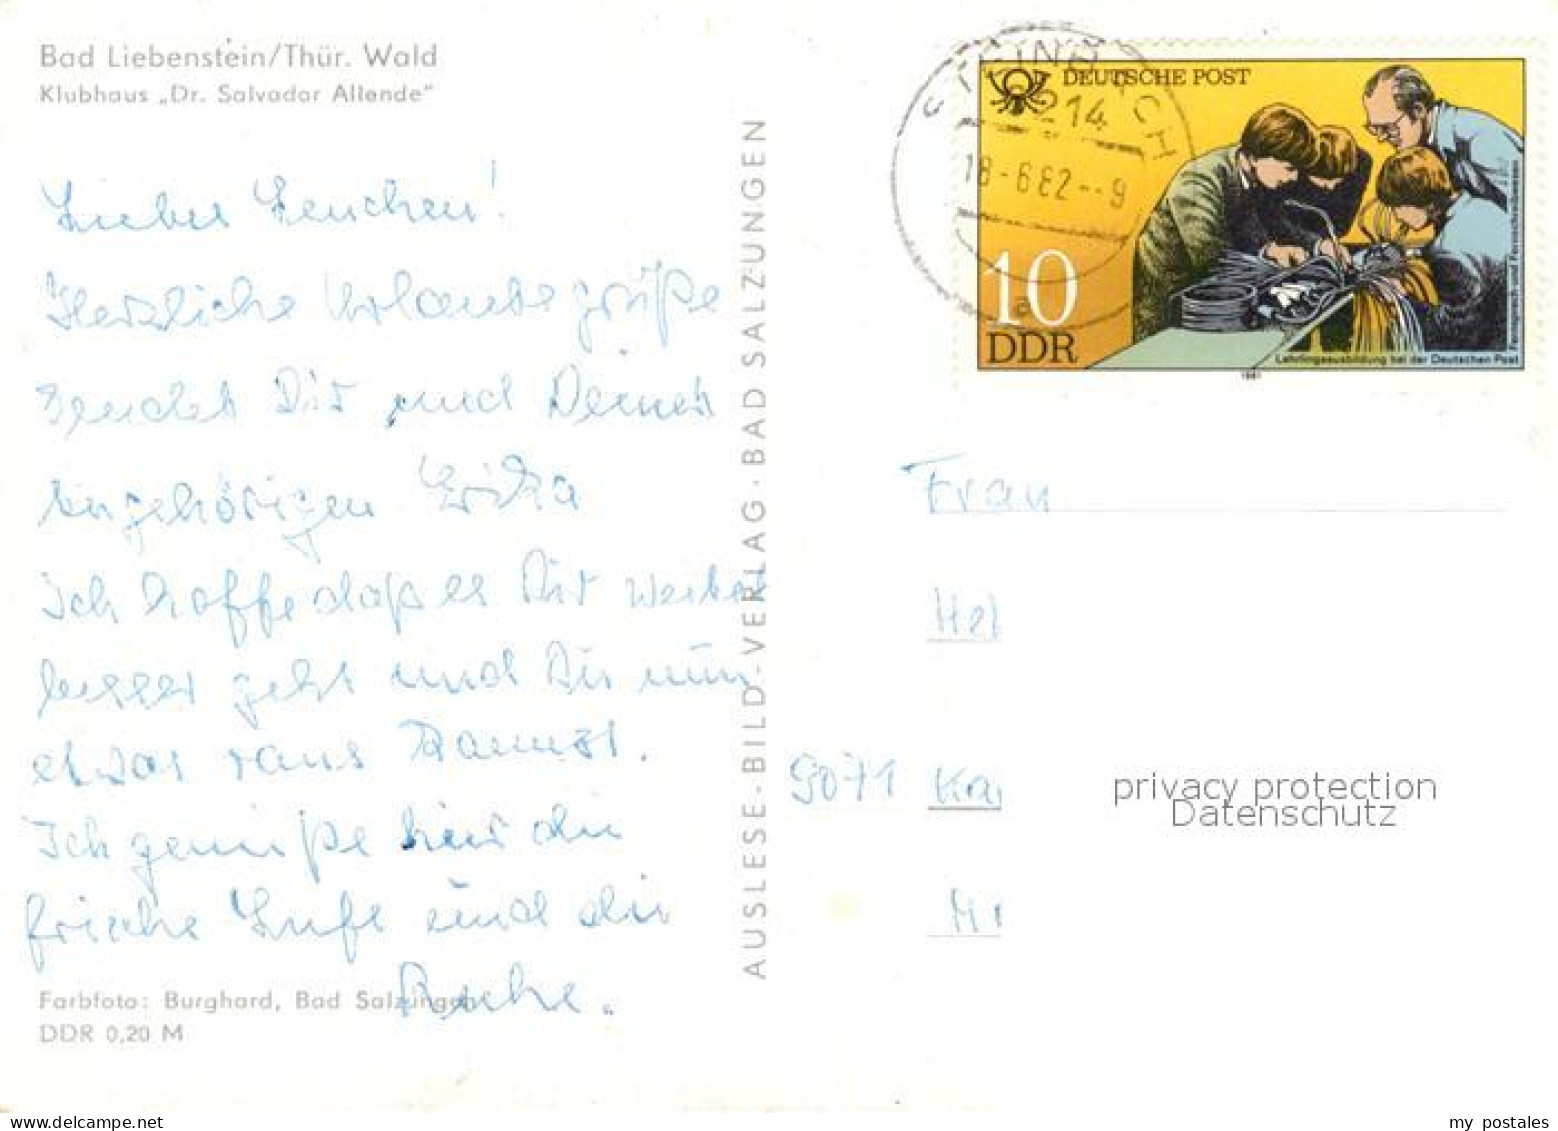 Bad Liebenstein/Thür. Wald
Klubhaus „Dr. Salvador Allende"
Liebes Lenchen!
Herzliche Urlaubsgrüße
sendet Dir und Deinen
Angehörigen Erika
Ich hoffe daß es Dir weiter
besser geht und Du nun
etwas raus kannst.
Ich genieße hier die
frische Luft und die
Ruhe.
Farbfoto: Burghard, Bad Salzungen
DDR 0,20 M
AUSLESE-BILD-VERLAG · BAD SALZUNGEN
STEINBACH
6214
18-6 82--9
a
DEUTSCHE POST
10
DDR
Lehrlingsausbildung bei der Deutschen Post
Fernsprech- und Fernschreibwesen
1981
Frau
Hel
9071 Ka
privacy protection
Datenschutz
delcampe.net
my postales